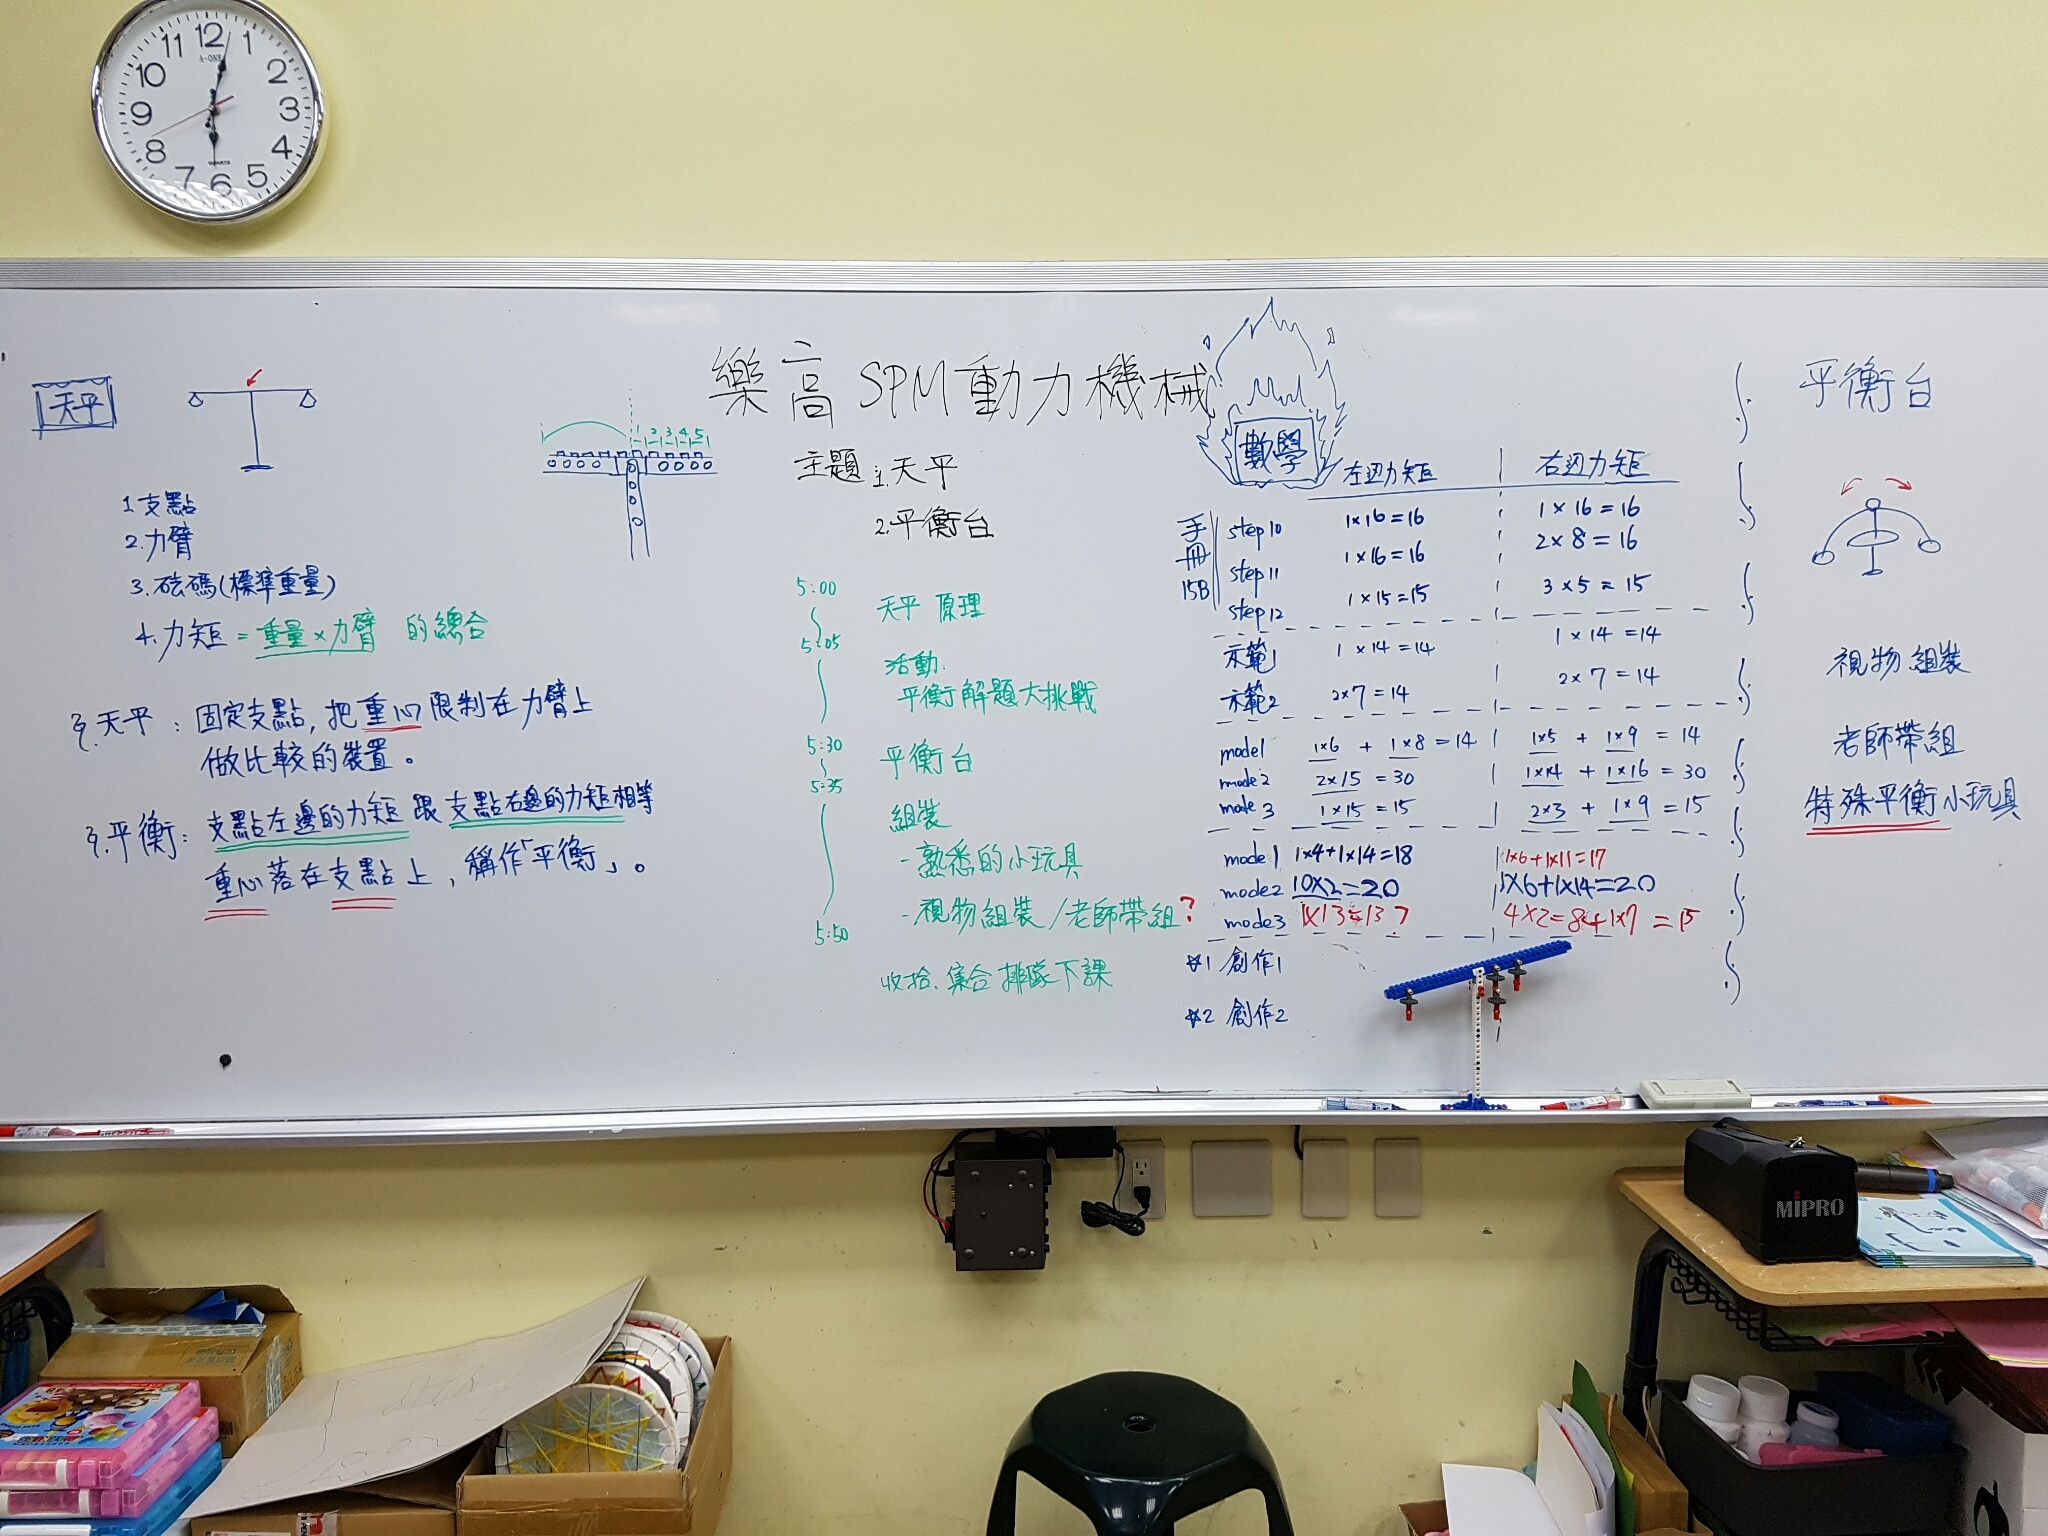 11 12 1
10 2
9 3
8 4
7 6 5
A-ONE
QUARTZ
天平
1.支點
2.力臂
3.砝碼(標準重量)
4.力矩=重量×力臂 的總合
天平：固定支點,把重心限制在力臂上
做比較的裝置。
平衡：支點左邊的力矩跟支點右邊的力矩相等
重心落在支點上,稱作「平衡」。
1 2 3 4 5
樂高SPM動力機械
主題 1.天平
2.平衡台
5:00
天平原理
5:05
活動:
平衡解題大挑戰
5:30
平衡台
5:35
組裝
-熟悉的小玩具
-視物組裝/老師帶組?
5:50
收拾.集合排隊下課
數學
左边力矩 右边力矩
手冊15B
step10 1×16=16 1×16=16
step11 1×16=16 2×8=16
step12 1×15=15 3×5=15
示範1 1×14=14 1×14=14
示範2 2×7=14 2×7=14
mode1 1×6+1×8=14 1×5+1×9=14
mode2 2×15=30 1×14+1×16=30
mode3 1×15=15 2×3+1×9=15
mode1 1×4+1×14=18 1×6+1×11=17
mode2 10×2=20 1×6+1×14=20
mode3 1×13=13? 4×2=8+1×7=15
☆1 創作1
☆2 創作2
平衡台
視物組裝
老師帶組
特殊平衡小玩具
MIPRO